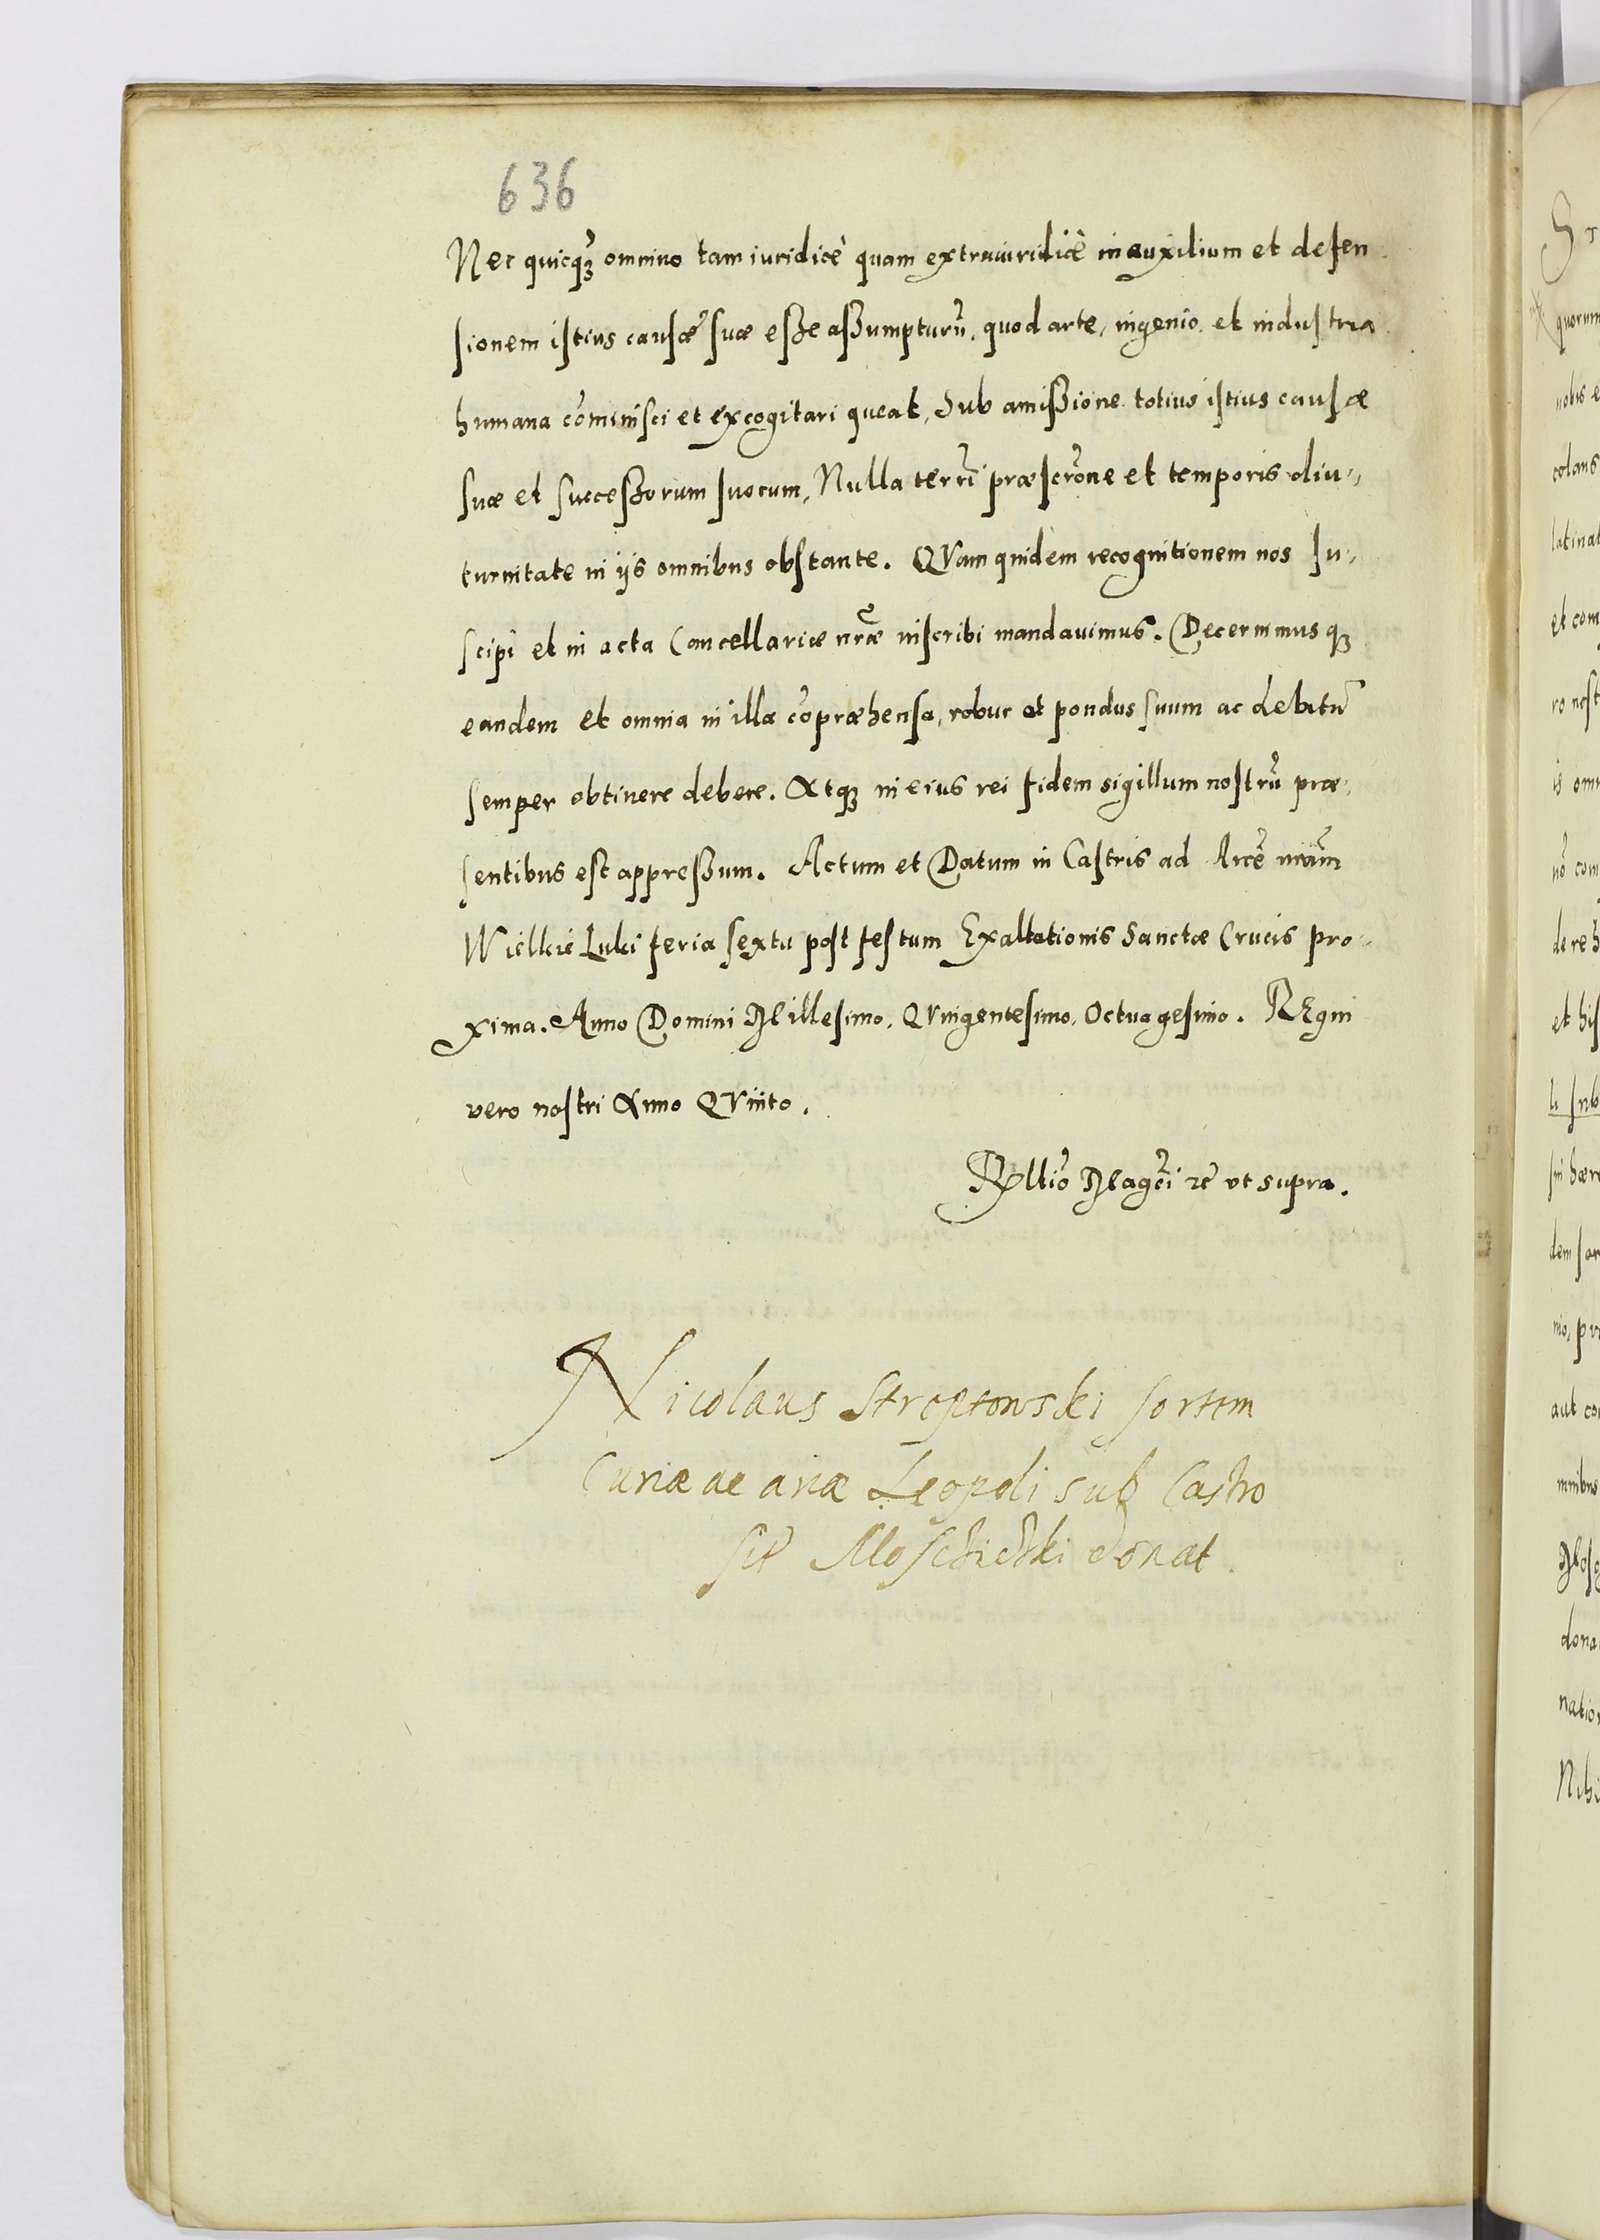 636
Nec quicq̃ʒ omnino tam iuridicè quam extraiuridicè in auxilium et defen
sionem istius causæ suæ esse assumpturũ, quod arte, ingenio, et industria
humana cõminisci et excogitari queat, Sub amissione totius istius causæ
suæ et successorum suorum, Nulla terrĩ præscrõne et temporis diu-
turnitate in ijs omnibus obstante. QVam quidem recognitionem nos su-
scipi et in acta Cancellariæ nr̃æ inscribi mandauimus. Decernimus qʒ
eandem et omnia in illa cõpræhensa, robur et pondus suum ac debitũ
semper obtinere debere. Atqʒ in eius rei fidem sigillum nostrũ præ-
sentibus est appressum. Actum et Datum in Castris ad Arcẽ nr̃am
Wielkie Luki feria sexta post festum Exaltationis Sanctæ Crucis pro-
xima. Anno Domini Millesimo, QVingentesimo, Octuagesimo. REgni
vero nostri Anno QVinto.
Rllio Magci zc̃ vt supra.
Nicolaus Streptowski sortem
Curiæ ae ariæ Leopoli sub Castro
sit Moschicki donat.